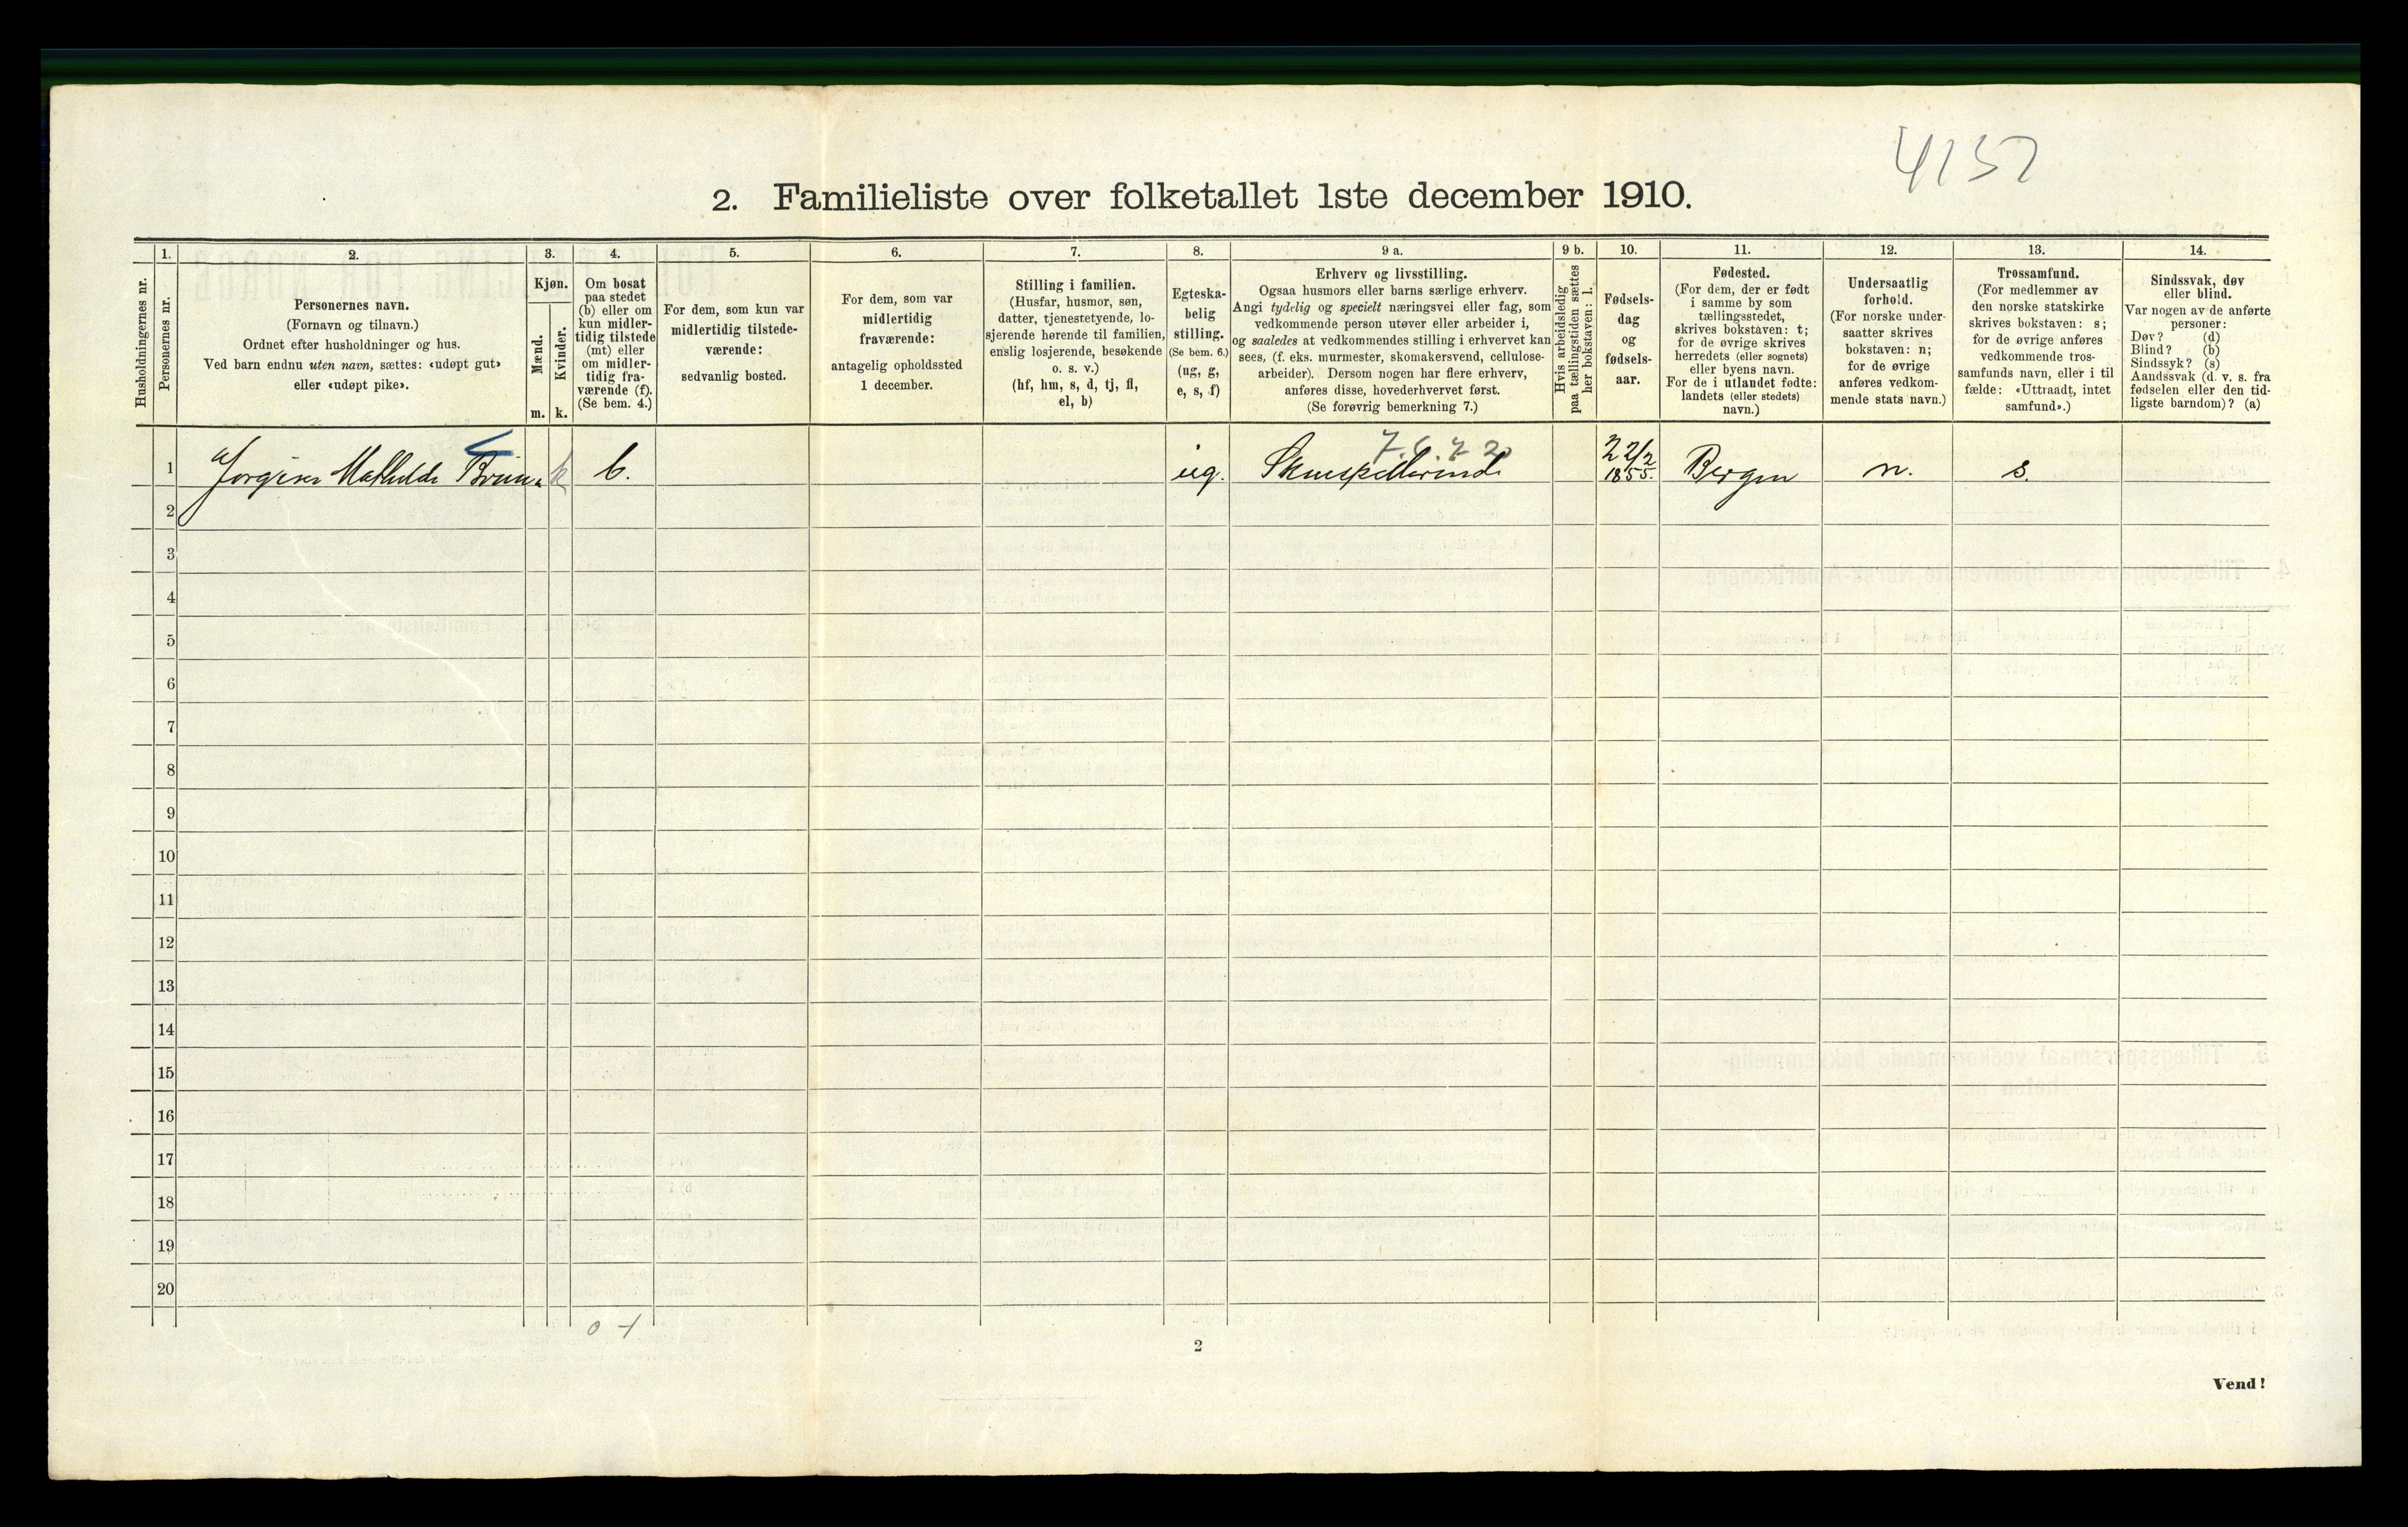 4157
2. Familieliste over folketallet 1ste december 1910.
Husholdningernes nr.
1.
Personernes nr.
2.
Personernes navn.
(Fornavn og tilnavn.)
Ordnet efter husholdninger og hus.
Ved barn endnu uten navn, sættes: «udøpt gut»
eller «udøpt pike».
3.
Kjøn.
Mænd.
m.
Kvinder.
k.
4.
Om bosat
paa stedet
(b) eller om
kun midler-
tidig tilstede
(mt) eller
om midler-
tidig fra-
værende (f).
(Se bem. 4.)
5.
For dem, som kun var
midlertidig tilstede-
værende:
sedvanlig bosted.
6.
For dem, som var
midlertidig
fraværende:
antagelig opholdssted
1 december.
7.
Stilling i familien.
(Husfar, husmor, søn,
datter, tjenestetyende, lo-
sjerende hørende til familien,
enslig losjerende, besøkende
o. s. v.)
(hf, hm, s, d, tj, fl,
el, b)
8.
Egteska-
belig
stilling.
(Se bem. 6.)
(ug, g,
e, s, f)
9 a.
Erhverv og livsstilling.
Ogsaa husmors eller barns særlige erhverv.
Angi tydelig og specielt næringsvei eller fag, som
vedkommende person utøver eller arbeider i,
og saaledes at vedkommendes stilling i erhvervet kan
sees, (f. eks. murmester, skomakersvend, cellulose-
arbeider). Dersom nogen har flere erhverv,
anføres disse, hovederhvervet først.
(Se forøvrig bemerkning 7.)
9 b.
Hvis arbeidsledig
paa tællingstiden sættes
her bokstaven: l.
10.
Fødsels-
dag
og
fødsels-
aar.
11.
Fødested.
(For dem, der er født
i samme by som
tællingsstedet,
skrives bokstaven: t;
for de øvrige skrives
herredets (eller sognets)
eller byens navn.
For de i utlandet fødte:
landets (eller stedets)
navn.)
12.
Undersaatlig
forhold.
(For norske under-
saatter skrives
bokstaven: n;
for de øvrige
anføres vedkom-
mende stats navn.)
13.
Trossamfund.
(For medlemmer av
den norske statskirke
skrives bokstaven: s;
for de øvrige anføres
vedkommende tros-
samfunds navn, eller i til
fælde: «Uttraadt, intet
samfund».)
14.
Sindssvak, døv
eller blind.
Var nogen av de anførte
personer:
Døv? (d)
Blind? (b)
Sindssyk? (s)
Aandssvak (d. v. s. fra
fødselen eller den tid-
ligste barndom)? (a)
1 Jorgine Mathilde Bruun k b. ug. Skuespillerinde 22/2 1855. Bergen n. s.
2
3
4
5
6
7
8
9
10
11
12
13
14
15
16
17
18
19
20
0 1
2
Vend!